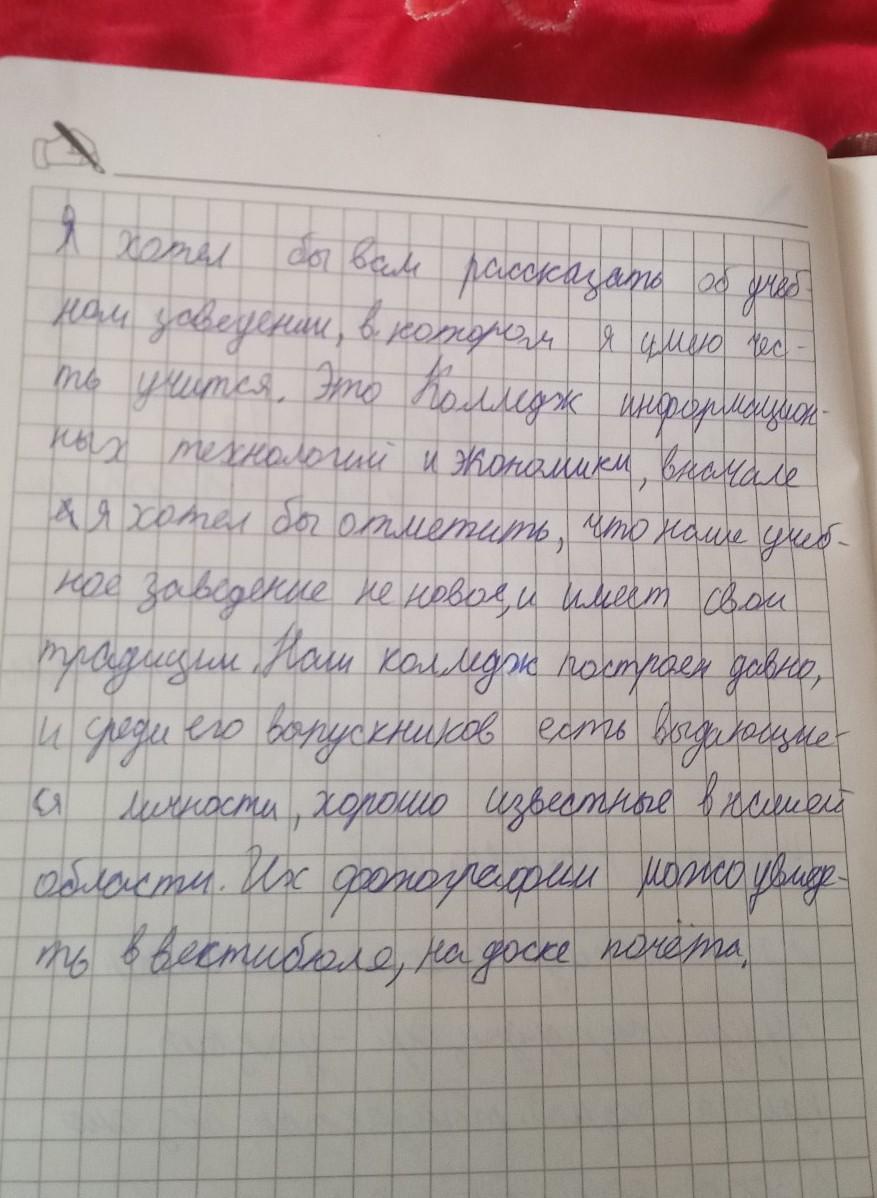 Я хотел бы вам рассказать об учеб-
ном заведении, в котором я имею чес-
ть учится. Это Колледж информацион-
ных технологий и экономики, вначале
я хотел бы отметить, что наше учеб-
ное заведение не новое, и имеет свои
традиции. Наш колледж построен давно,
и среди его выпускников есть выдающие-
ся личности, хорошо известные в нашей
области. Их фотографии можно увиде-
ть в вестибюле, на доске почёта.